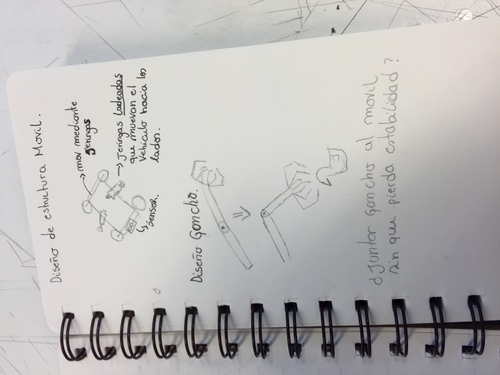 Diseño de estructura Movil.
→ mov mediante
Jeringas
→ Jeringas Ladeadas
que muevan el
vehiculo hacia los
lados.
Sensor.
Diseño Goncho.
¿Juntar Goncho al movil
sin que pierda estabilidad?